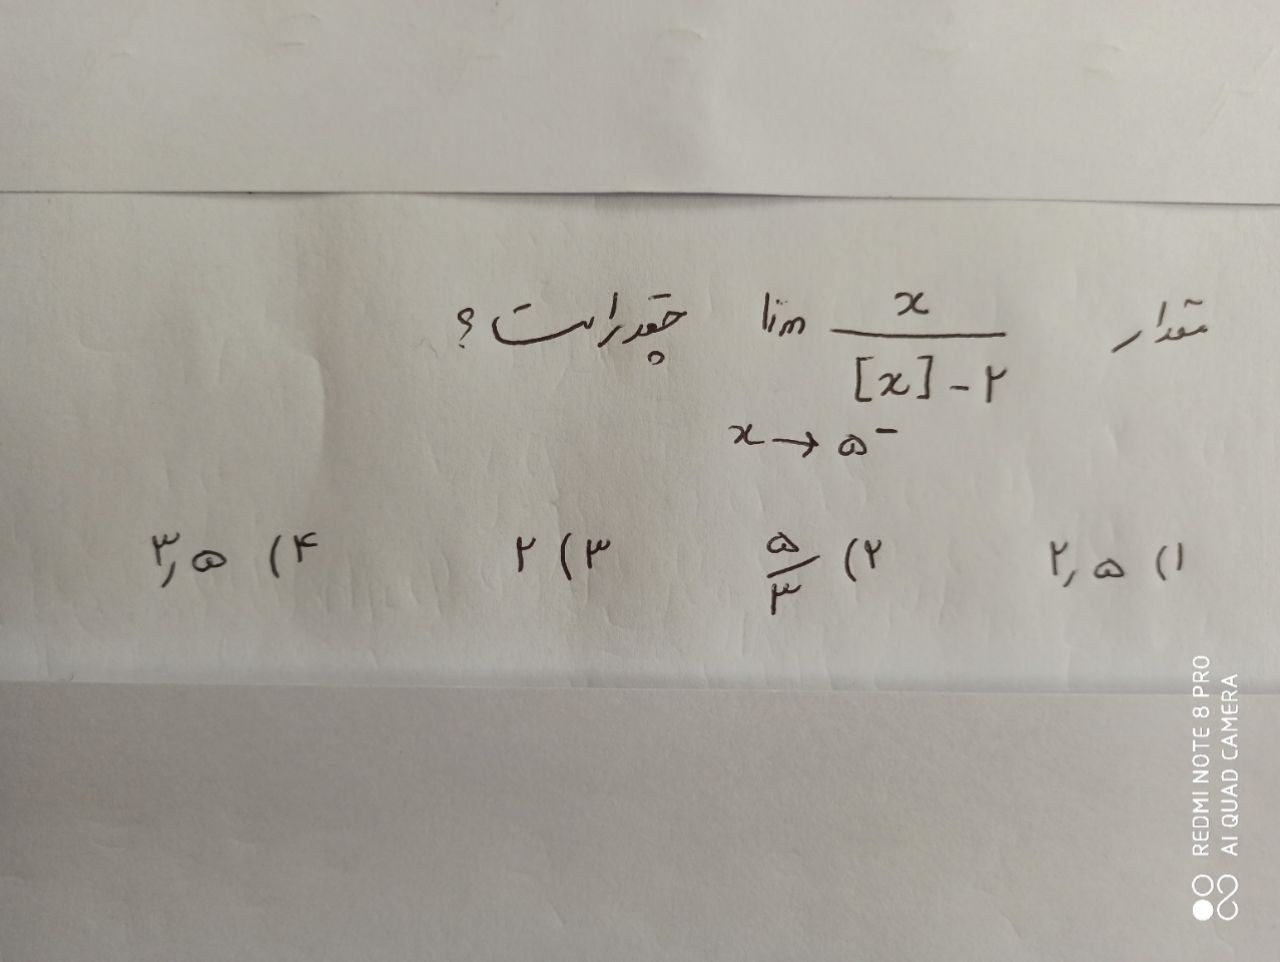 مقدار lim x / [x] - ۲ چقدر است ؟
x → ۵⁻
۱) ۲,۵ ۲) ۵/۳ ۳) ۲ ۴) ۳,۵
REDMI NOTE 8 PRO
AI QUAD CAMERA